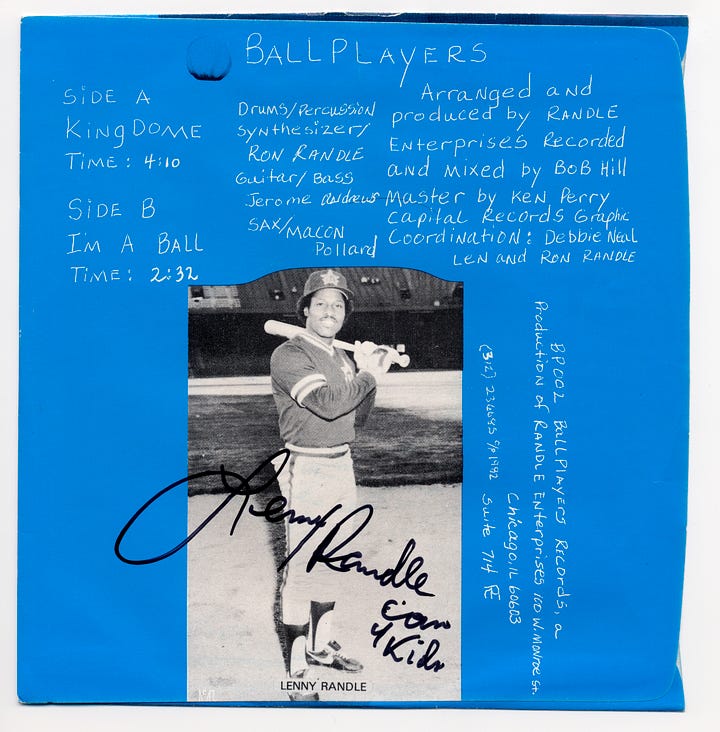 BALLPLAYERS
SIDE A
KINGDOME
TIME: 4:10
SIDE B
I'M A BALL
TIME: 2:32
Drums/Percussion
Synthesizer/
RON RANDLE
Guitar/Bass
Jerome Andrews
SAX/MACON
Pollard
Arranged and
produced by RANDLE
Enterprises Recorded
and mixed by BOB Hill
Master by Ken Perry
Capital Records Graphic
Coordination: Debbie Neal
LEN and RON RANDLE
BP002 BallPlayers Records, a
Production of RANDLE Enterprises 100 W. Monroe St.
Chicago, IL 60603
Suite 714
Lenny Randle
4 Kids
LENNY RANDLE